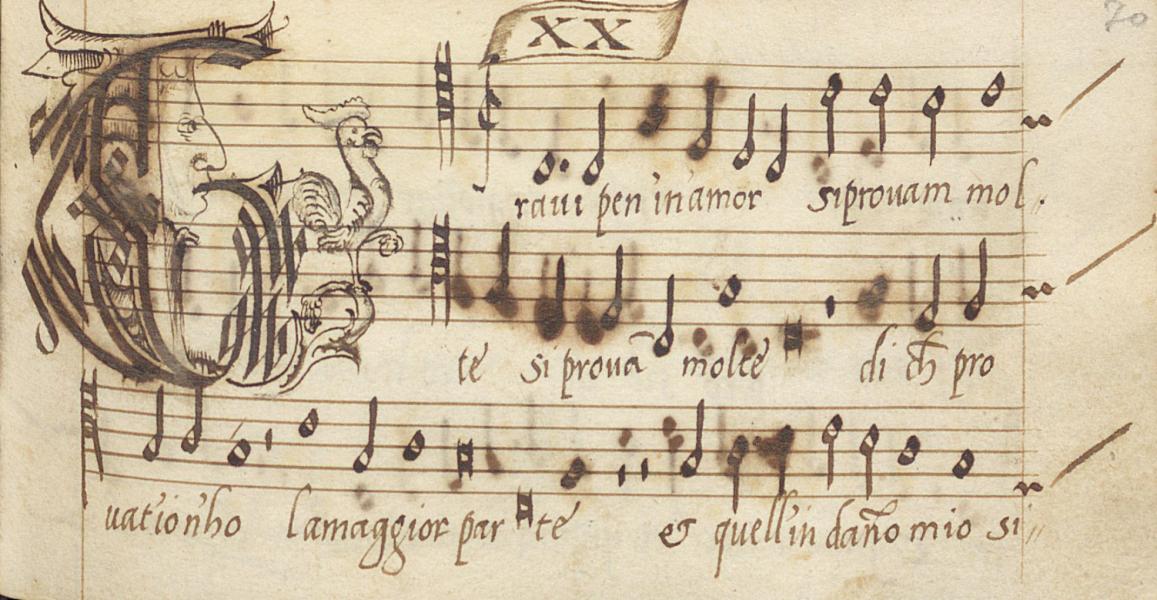 XX
70
G
raui pen in amor siprouam mol
te si prouā molte di ch̄ pro
uation ho la maggior par te
et quell in dañomio si